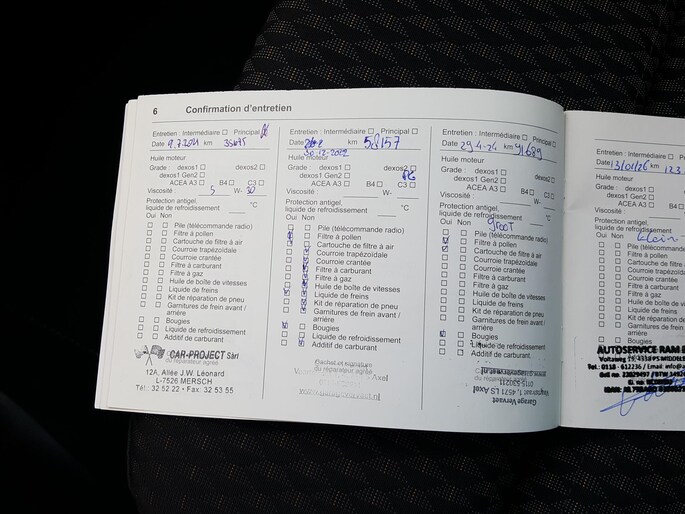 6 Confirmation d'entretien
Entretien : Intermédiaire Principal
Date 9.7.2021 km
Huile moteur
Grade : dexos1 dexos2
dexos1 Gen2
ACEA A3 B4 C3
Viscosité : 5 W- 30
Protection antigel,
liquide de refroidissement °C
Oui Non
Pile (télécommande radio)
Filtre à pollen
Cartouche de filtre à air
Courroie trapézoïdale
Courroie crantée
Filtre à carburant
Filtre à gaz
Huile de boîte de vitesses
Liquide de freins
Kit de réparation de pneu
Garnitures de frein avant /
arrière
Bougies
Liquide de refroidissement
Additif de carburant
CAR-PROJECT Sàrl
12A, Allée J.W. Léonard
L-7526 MERSCH
Tél.: 32 52 22 • Fax: 32 53 55
Entretien : Intermédiaire Principal
Date 30-12-2022 km 58157
Huile moteur
Grade : dexos1 dexos2
dexos1 Gen2
ACEA A3 B4 C3
Viscosité : W-
Protection antigel,
liquide de refroidissement °C
Oui Non
Pile (télécommande radio)
Filtre à pollen
Cartouche de filtre à air
Courroie trapézoïdale
Courroie crantée
Filtre à carburant
Filtre à gaz
Huile de boîte de vitesses
Liquide de freins
Kit de réparation de pneu
Garnitures de frein avant /
arrière
Bougies
Liquide de refroidissement
Additif de carburant
Cachet et signature
du réparateur agréé
Axel
Entretien : Intermédiaire Principal
Date 29-4-24 km 91689
Huile moteur
Grade : dexos1 dexos2
dexos1 Gen2
ACEA A3 B4 C3
Viscosité : W-
Protection antigel,
liquide de refroidissement °C
Oui Non groot
Pile (télécommande radio)
Filtre à pollen
Cartouche de filtre à air
Courroie trapézoïdale
Courroie crantée
Filtre à carburant
Filtre à gaz
Huile de boîte de vitesses
Liquide de freins
Kit de réparation de pneu
Garnitures de frein avant /
arrière
Bougies
Liquide de refroidissement
Additif de carburant
Garage Vervaet
Entretien : Intermédiaire
Date 13/01/26 km
Huile moteur
Grade : dexos1
dexos1 Gen2
ACEA A3
Viscosité :
Protection antigel,
liquide de refroidissement
Oui Non klein
Pile (télécommande
Filtre à pollen
Cartouche de filtre
Courroie trapézoïdale
Courroie crantée
Filtre à carburant
Filtre à gaz
Huile de boîte
Liquide de freins
Kit de réparation
Garnitures de
arrière
Bougies
AUTOSERVICE RAM